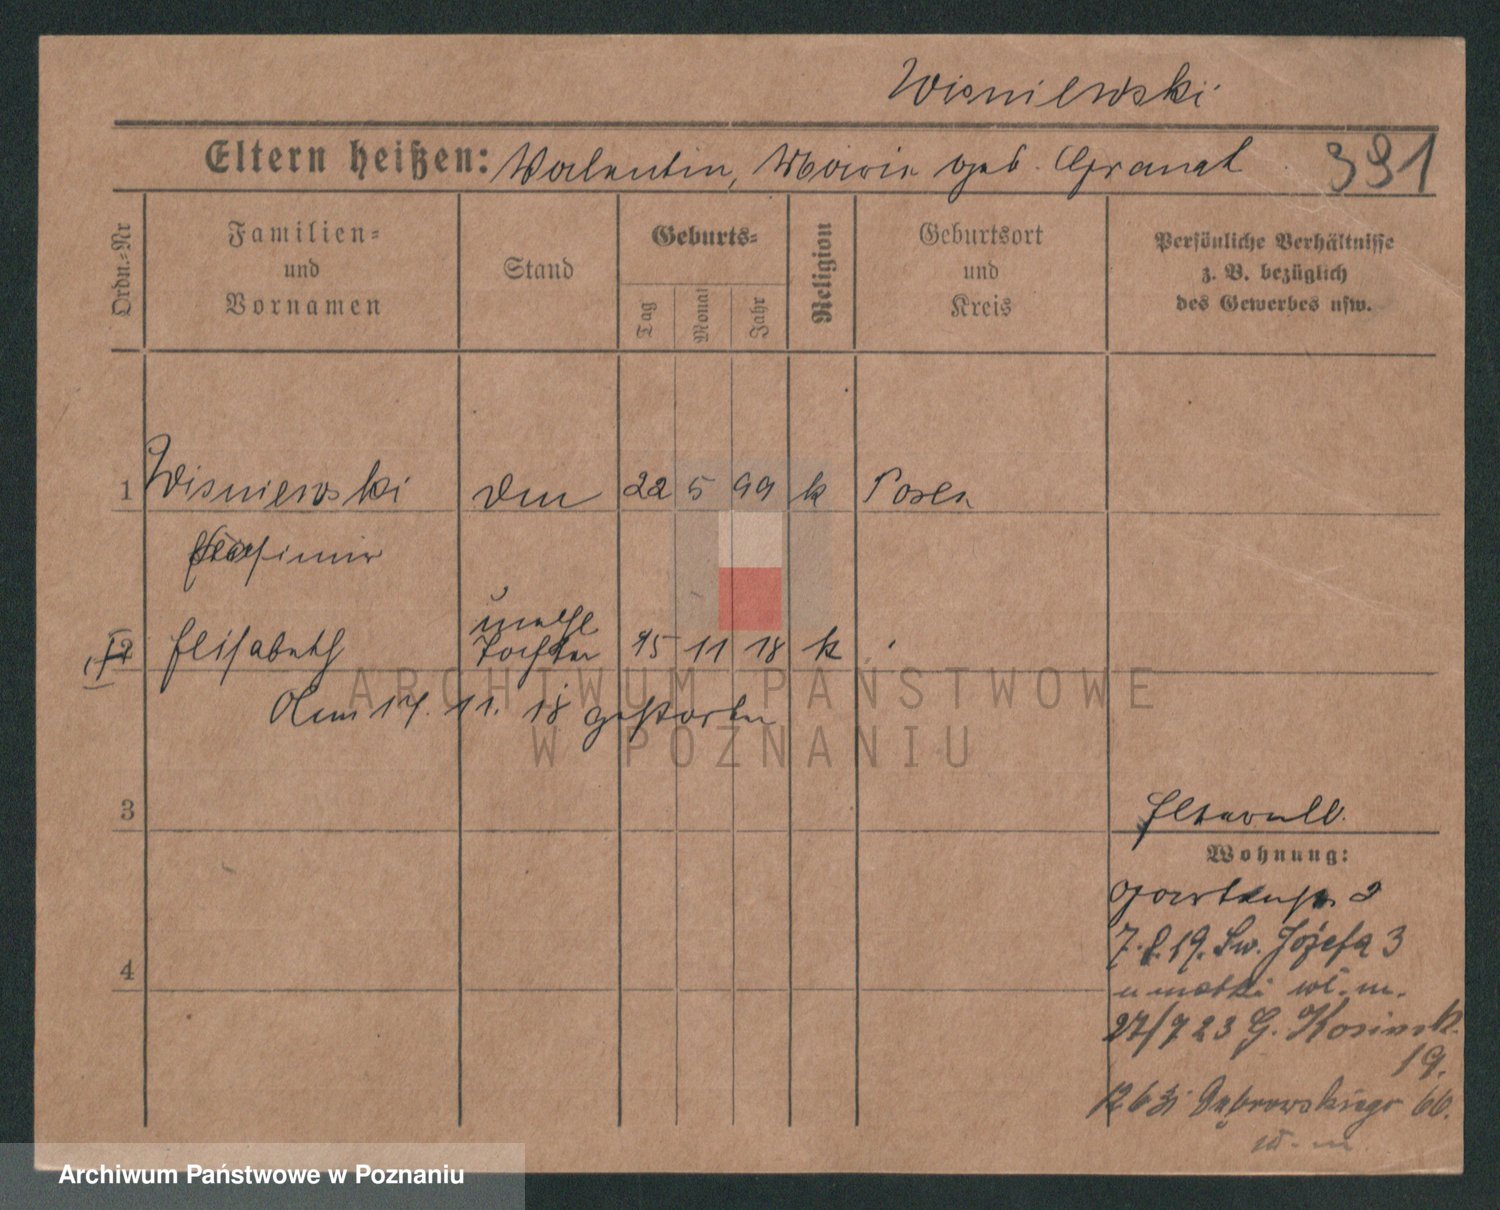 Wisniewski
Eltern heißen: Valentin, Marie geb. Granat 391
Ordn.-Nr
Familien-
und
Vornamen
Stand
Geburts-
Tag
Monat
Jahr
Religion
Geburtsort
und
Kreis
Persönliche Verhältnisse
z. B. bezüglich
des Gewerbes usw.
1 Wisniewski 22 5 99 k Posen
Kasimir
unehl
2 Elisabeth Tochter 15 11 18 k
Am 17. 11. 18 gestorben
ARCHIWUM PAŃSTWOWE
W POZNANIU
3
Wohnung:
Gartenstr. 2
7.8.19. Św. Józefa 3
4
u matki wł. m.
27/7 23 G. Kosinsk.
19.
Dąbrowskiego 60.
Archiwum Państwowe w Poznaniu